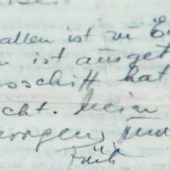 allen ist zu E
n ist ausget
sschiff hat
cht. Mein
orgen, und
Fritz